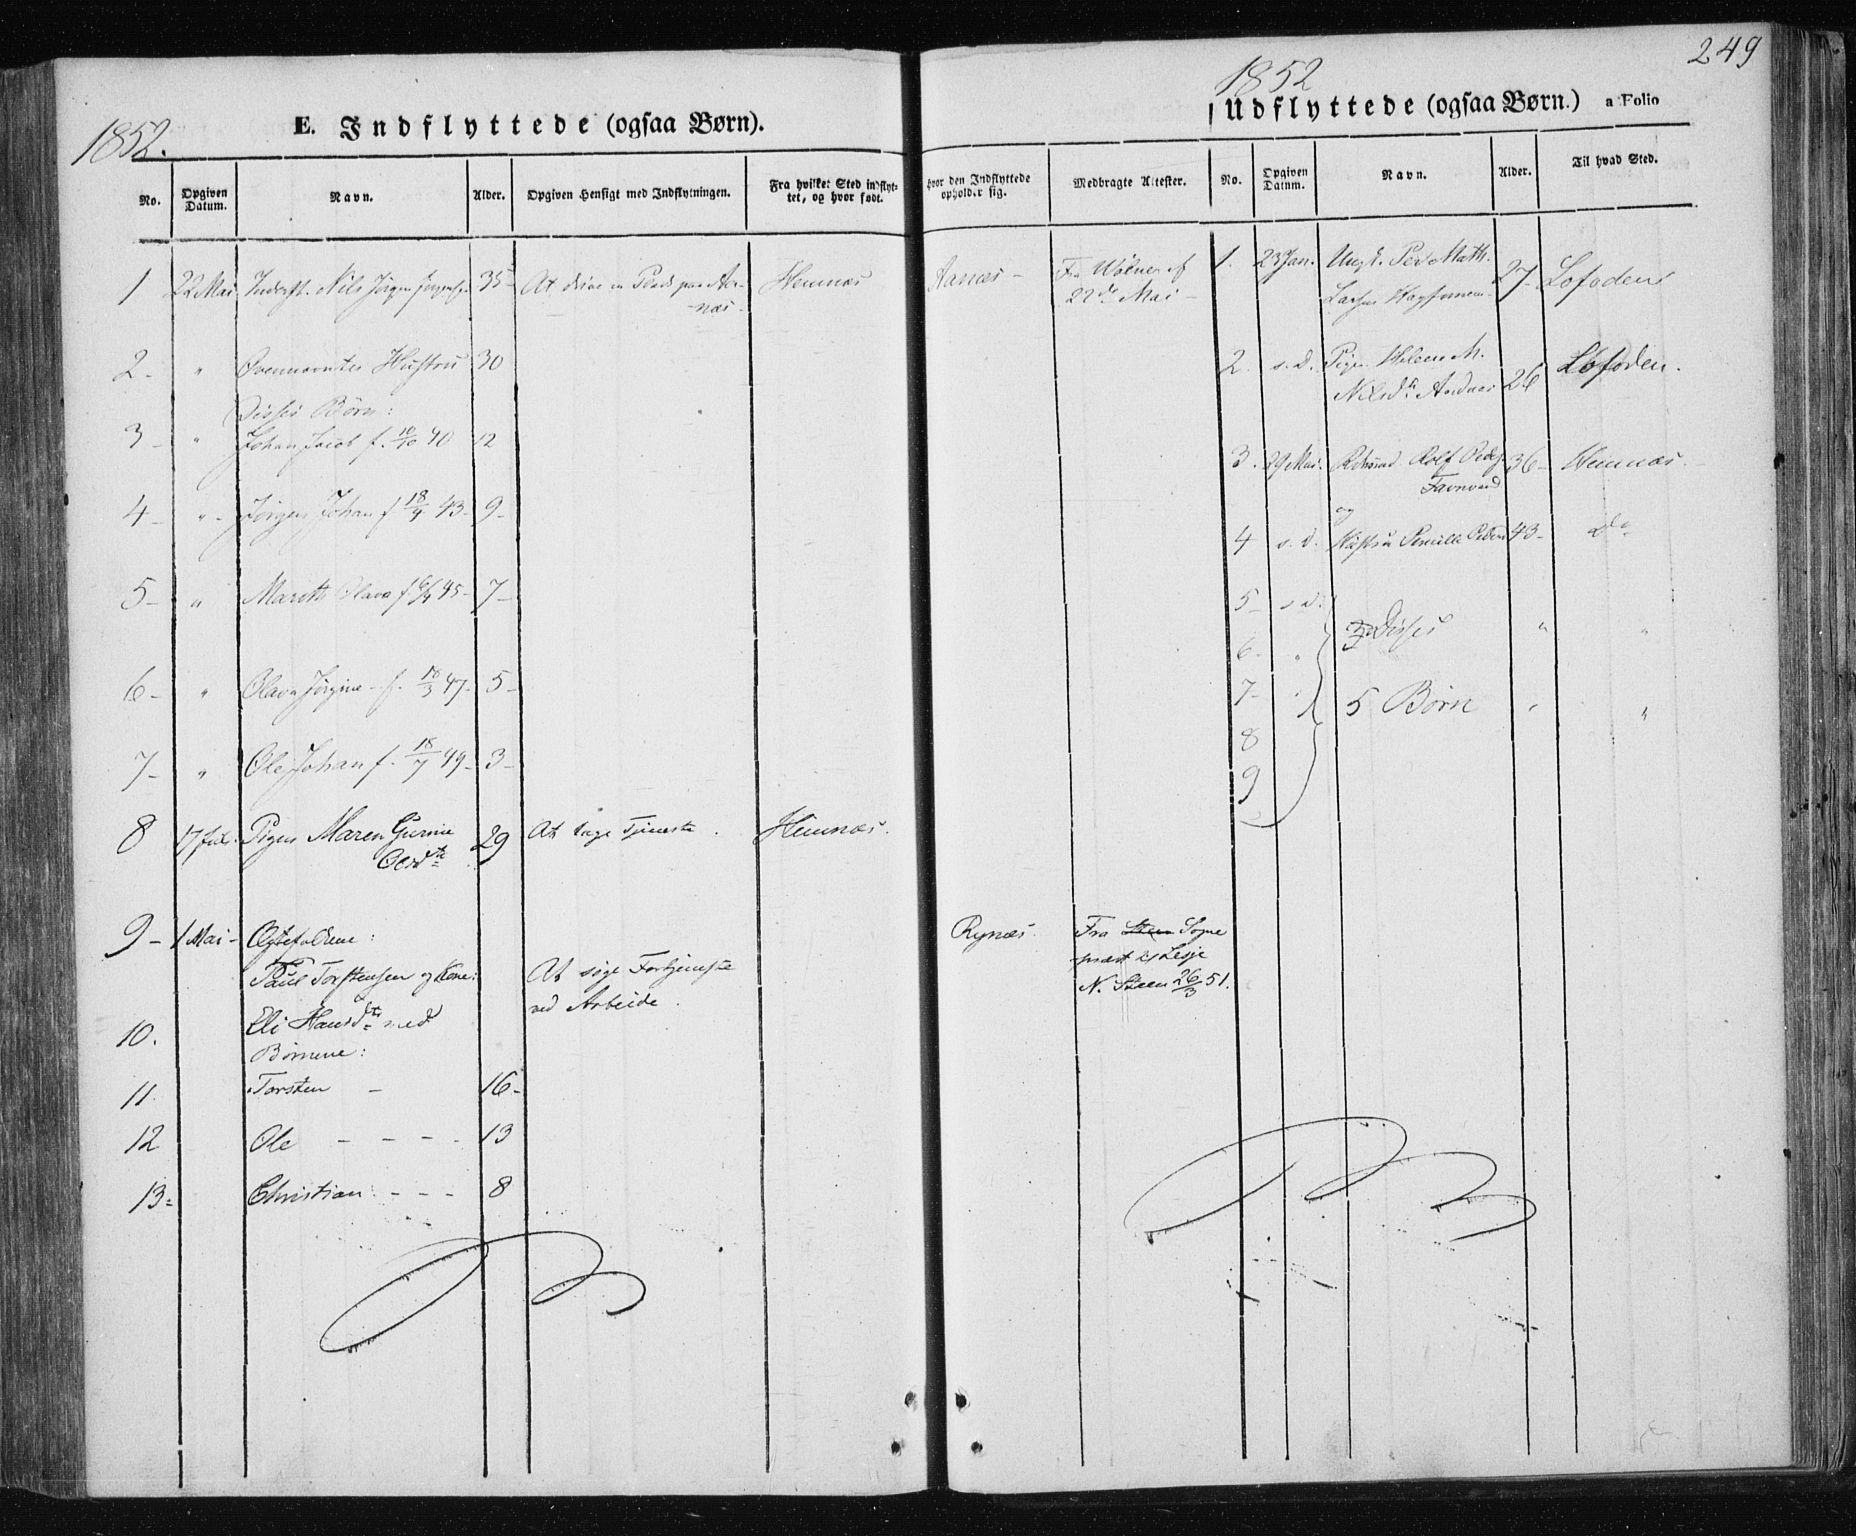 249
1852.
E. Indflyttede (ogsaa Børn).
No.
Opgiven Datum.
Navn.
Alder.
Opgiven Hensigt med Indflytningen.
Fra hvilket Sted indflyttet, og hvor født.
hvor den Indflyttede opholder sig.
Medbragte Attester.
1 22 Mai Nils Jørgen 35 At drive en Plads paa Aarnæs. Hemnæs Aarnæs Fra af 22de Mai
2 " Ovennævntes Hustru 30
Disses Børn:
3 " Johan Jacob f. 10/10 40 12
4 " Jørgen Johan f 18/4 43 9
5 " Mareth Olava f. 6/4 45 7
6 " Olava Jørgine f. 18/3 47 5
7 " Ole Johan f. 18/7 49 3
8 17 Juli Pigen Maren Gurine Olsdtr 29 At tage Tjeneste. Hemnæs.
9 1 Mai Ægtefolkene:
Paul Torstensen og Kone: At søge Fortjeneste ved Arbeide. Rynæs. Fra Steen Sogne præst til Lesje N. Steen 26/3 51.
10. Eli Hansdtr med
Børnene:
11. Torsten 16
12 Ole 13
13 Christian 8
1852
Udflyttede (ogsaa Børn.) a Folio
No.
Opgiven Datum.
Navn.
Alder.
Til hvad Sted.
1. 23 Jan. Ungk. Peder Math. 27 Lofoden
2. s. D. Pigen Nilsdtr 26 Lofoden.
3. 29 Mai. Rolf Peders. 36 Hemnæs.
og
4 s. d. Hustru Pernille 43 do
5 s d.
6 " Disses " "
7 " 5 Børn " "
8
9